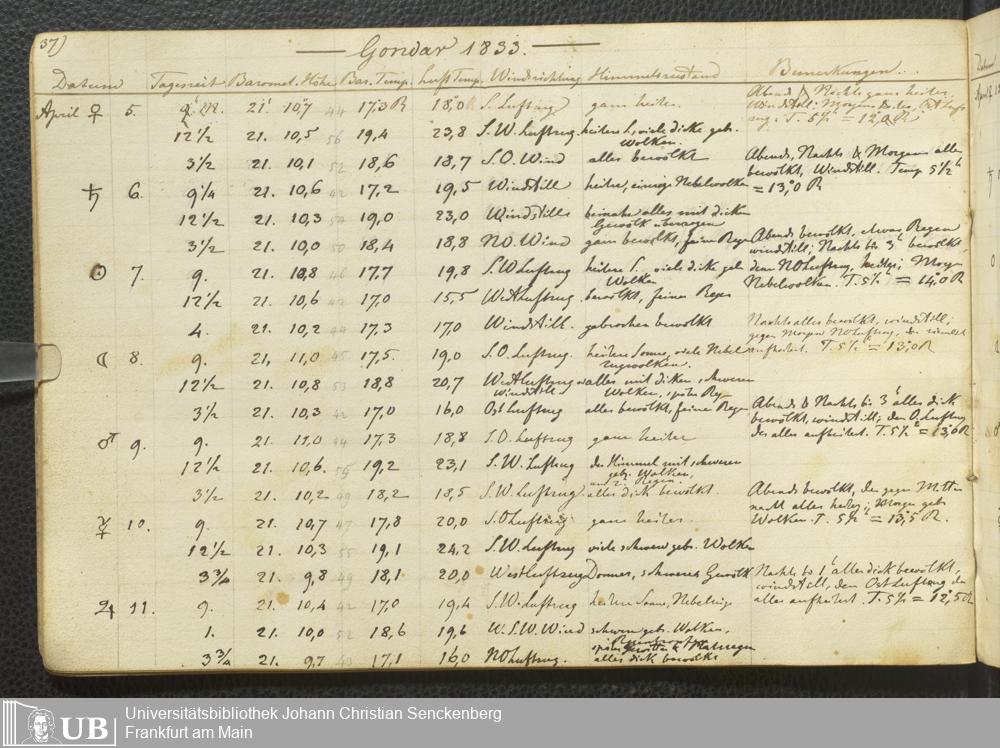 37)
Gondar 1833.
Datum Tageszeit Baromet. Höhe Bar. Temp. Luft Temp. Windrichtung Himmelszustand Bemerkungen.
April ♀ 5. 9 M. 21. 10,7 44 17,3 R 18,0 R S. Luftzug ganz heiter.
Abend & Nachts ganz heiter,
Windstill; Morgens
T. 5½ = 12,0 R
12½ 21. 10,5 56 19,4 23,8 S.W. Luftzug. heitere S., viele dicke geb.
Wolken.
3½ 21. 10,1 52 18,6 18,7 S.O. Wind alles bewölkt
Abends, Nachts & Morgens alles
bewölkt, Windstill. Temp 5½ h
= 13,0 R
♄ 6. 9¼ 21. 10,6 42 17,2 19,5 Windstill heiter, einige Nebelwolken
12½ 21. 10,3 19,0 23,0 Windstille beinahe alles mit dicken
Gewölk überzogen
3½ 21. 10,0 18,4 18,8 NO. Wind ganz bewölkt, feine Regen
Abends bewölkt, etwas Regen
windstill; Nachts bis 3 h bewölkt,
dann NO Luftzug, heiter; Morgen
Nebelwolken. T. 5½ h = 14,0 R
☉ 7. 9. 21. 10,8 46 17,7 19,8 S.W Luftzug heitere S., viele dicke geb
Wolken
12½ 21. 10,6 17,0 15,5 West Luftzug. bewölkt, feiner Regen
4. 21. 10,2 44 17,3 17,0 Windstill. gebrochen bewölkt
Nachts alles bewölkt, windstill;
gegen Morgen NO Luftzug, der
aufheitert. T. 5½ = 13,0 R
☾ 8. 9. 21. 11,0 45 17,5. 19,0 S.O. Luftzug. heitere Sonne, viele Nebel
12½ 21. 10,8 53 18,8 20,7 West Luftzug alles mit dicken, schweren
windstill Wolken, später Reg
3½ 21. 10,3 42 17,0 16,0 Ost Luftzug alles bewölkt, feine Regen
Abend & Nachts bis 3 h alles dick
bewölkt, windstill; dann O. Luftzug
der alles aufheitert. T. 5½ h = 13,6 R
♂ 9. 9. 21. 11,0 44 17,3 18,8 S.O. Luftzug ganz heiter
12½ 21. 10,6. 55 19,2 23,1 S.W. Luftzug der Himmel mit schweren
geb. Wolken,
Regen.
3½ 21. 10,2 49 18,2 18,5 S.W. Luftzug alles dick bewölkt.
Abends bewölkt, der gegen Mitter
nacht alles heiter; Morgen geb
Wolken. T. 5½ h = 13,5 R.
☿ 10. 9. 21. 10,7 47 17,8 20,0 S.O Luftzug ganz heiter.
12½ 21. 10,3 55 19,1 24,2 S.W. Luftzug viele schwere geb. Wolken
3¾ 21. 9,8 49 18,1 20,0 West Luftzug Donner, schweres Gewölk
Nachts bis 1 h alles dick bewölkt,
windstill, dann Ost Luftzug der
alles aufheitert. T. 5½ = 12,5 R
♃ 11. 9. 21. 10,4 42 17,0 19,4 S.W. Luftzug heitere Sonne,
1. 21. 10,0 52 18,6 19,6 W.S.W. Wind schwere geb. Wolken,
später Gewitter & Platzregen
3¾ 21. 9,7 17,1 16,0 NO Luftzug. alles dick bewölkt
Datum
April
UB
Universitätsbibliothek Johann Christian Senckenberg
Frankfurt am Main